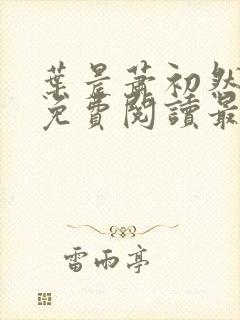 葉晨蕭初然
免費閱讀最
雷雨亭